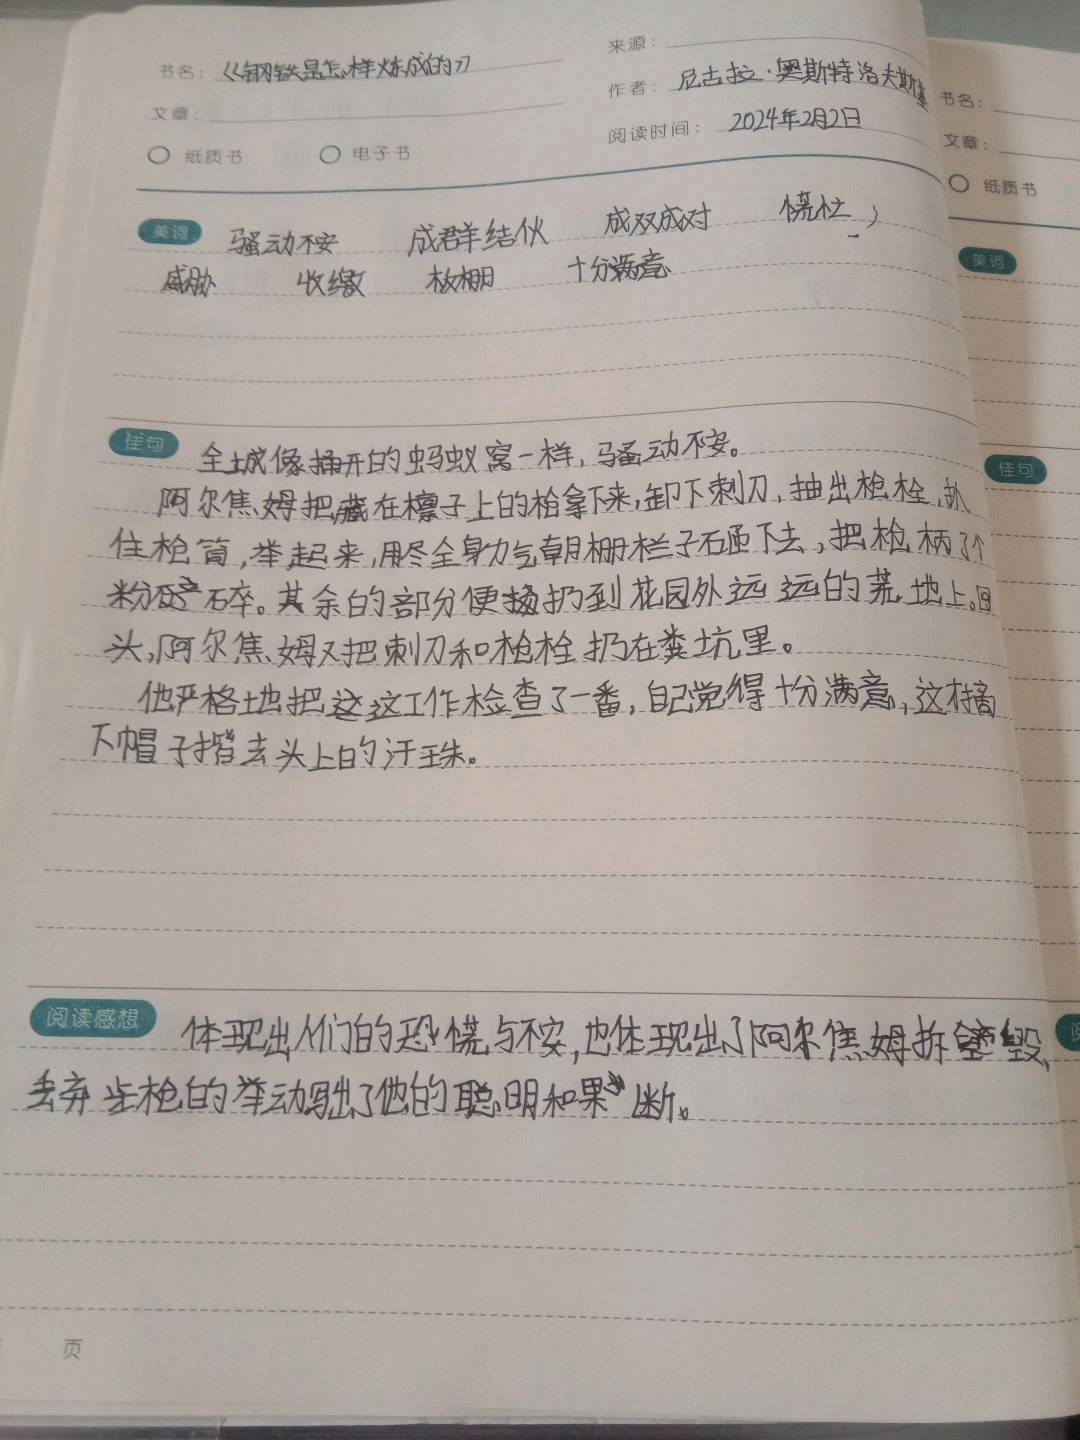 书名：《钢铁是怎样炼成的》
来源：
作者：尼古拉·奥斯特洛夫斯基
文章：
阅读时间：2024年2月2日
纸质书 电子书
美词 骚动不安 成群结伙 成双成对 慌忙
威胁 收缴 栅栏 十分满意
佳句 全城像捅开的蚂蚁窝一样，骚动不安。
阿尔焦姆把藏在檩子上的枪拿下来，卸下刺刀，抽出枪栓，趴
住枪筒，举起来，用尽全身力气朝栅栏子石砸下去，把枪柄了个
粉碎。其余的部分便扔到花园外远远的荒地上。回
头，阿尔焦姆又把刺刀和枪栓扔在粪坑里。
他严格地把这这工作检查了一番，自己觉得十分满意，这才摘
下帽子揩去头上的汗珠。
阅读感想 体现出人们的恐慌与不安，也体现出了阿尔焦姆拆毁、
丢弃步枪的举动写出了他的聪明和果断。
页
书名：
文章：
纸质书
美词
佳句